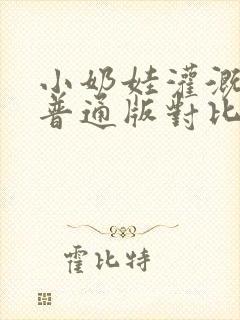 小奶娃灌溉
普通版對比
霍比特